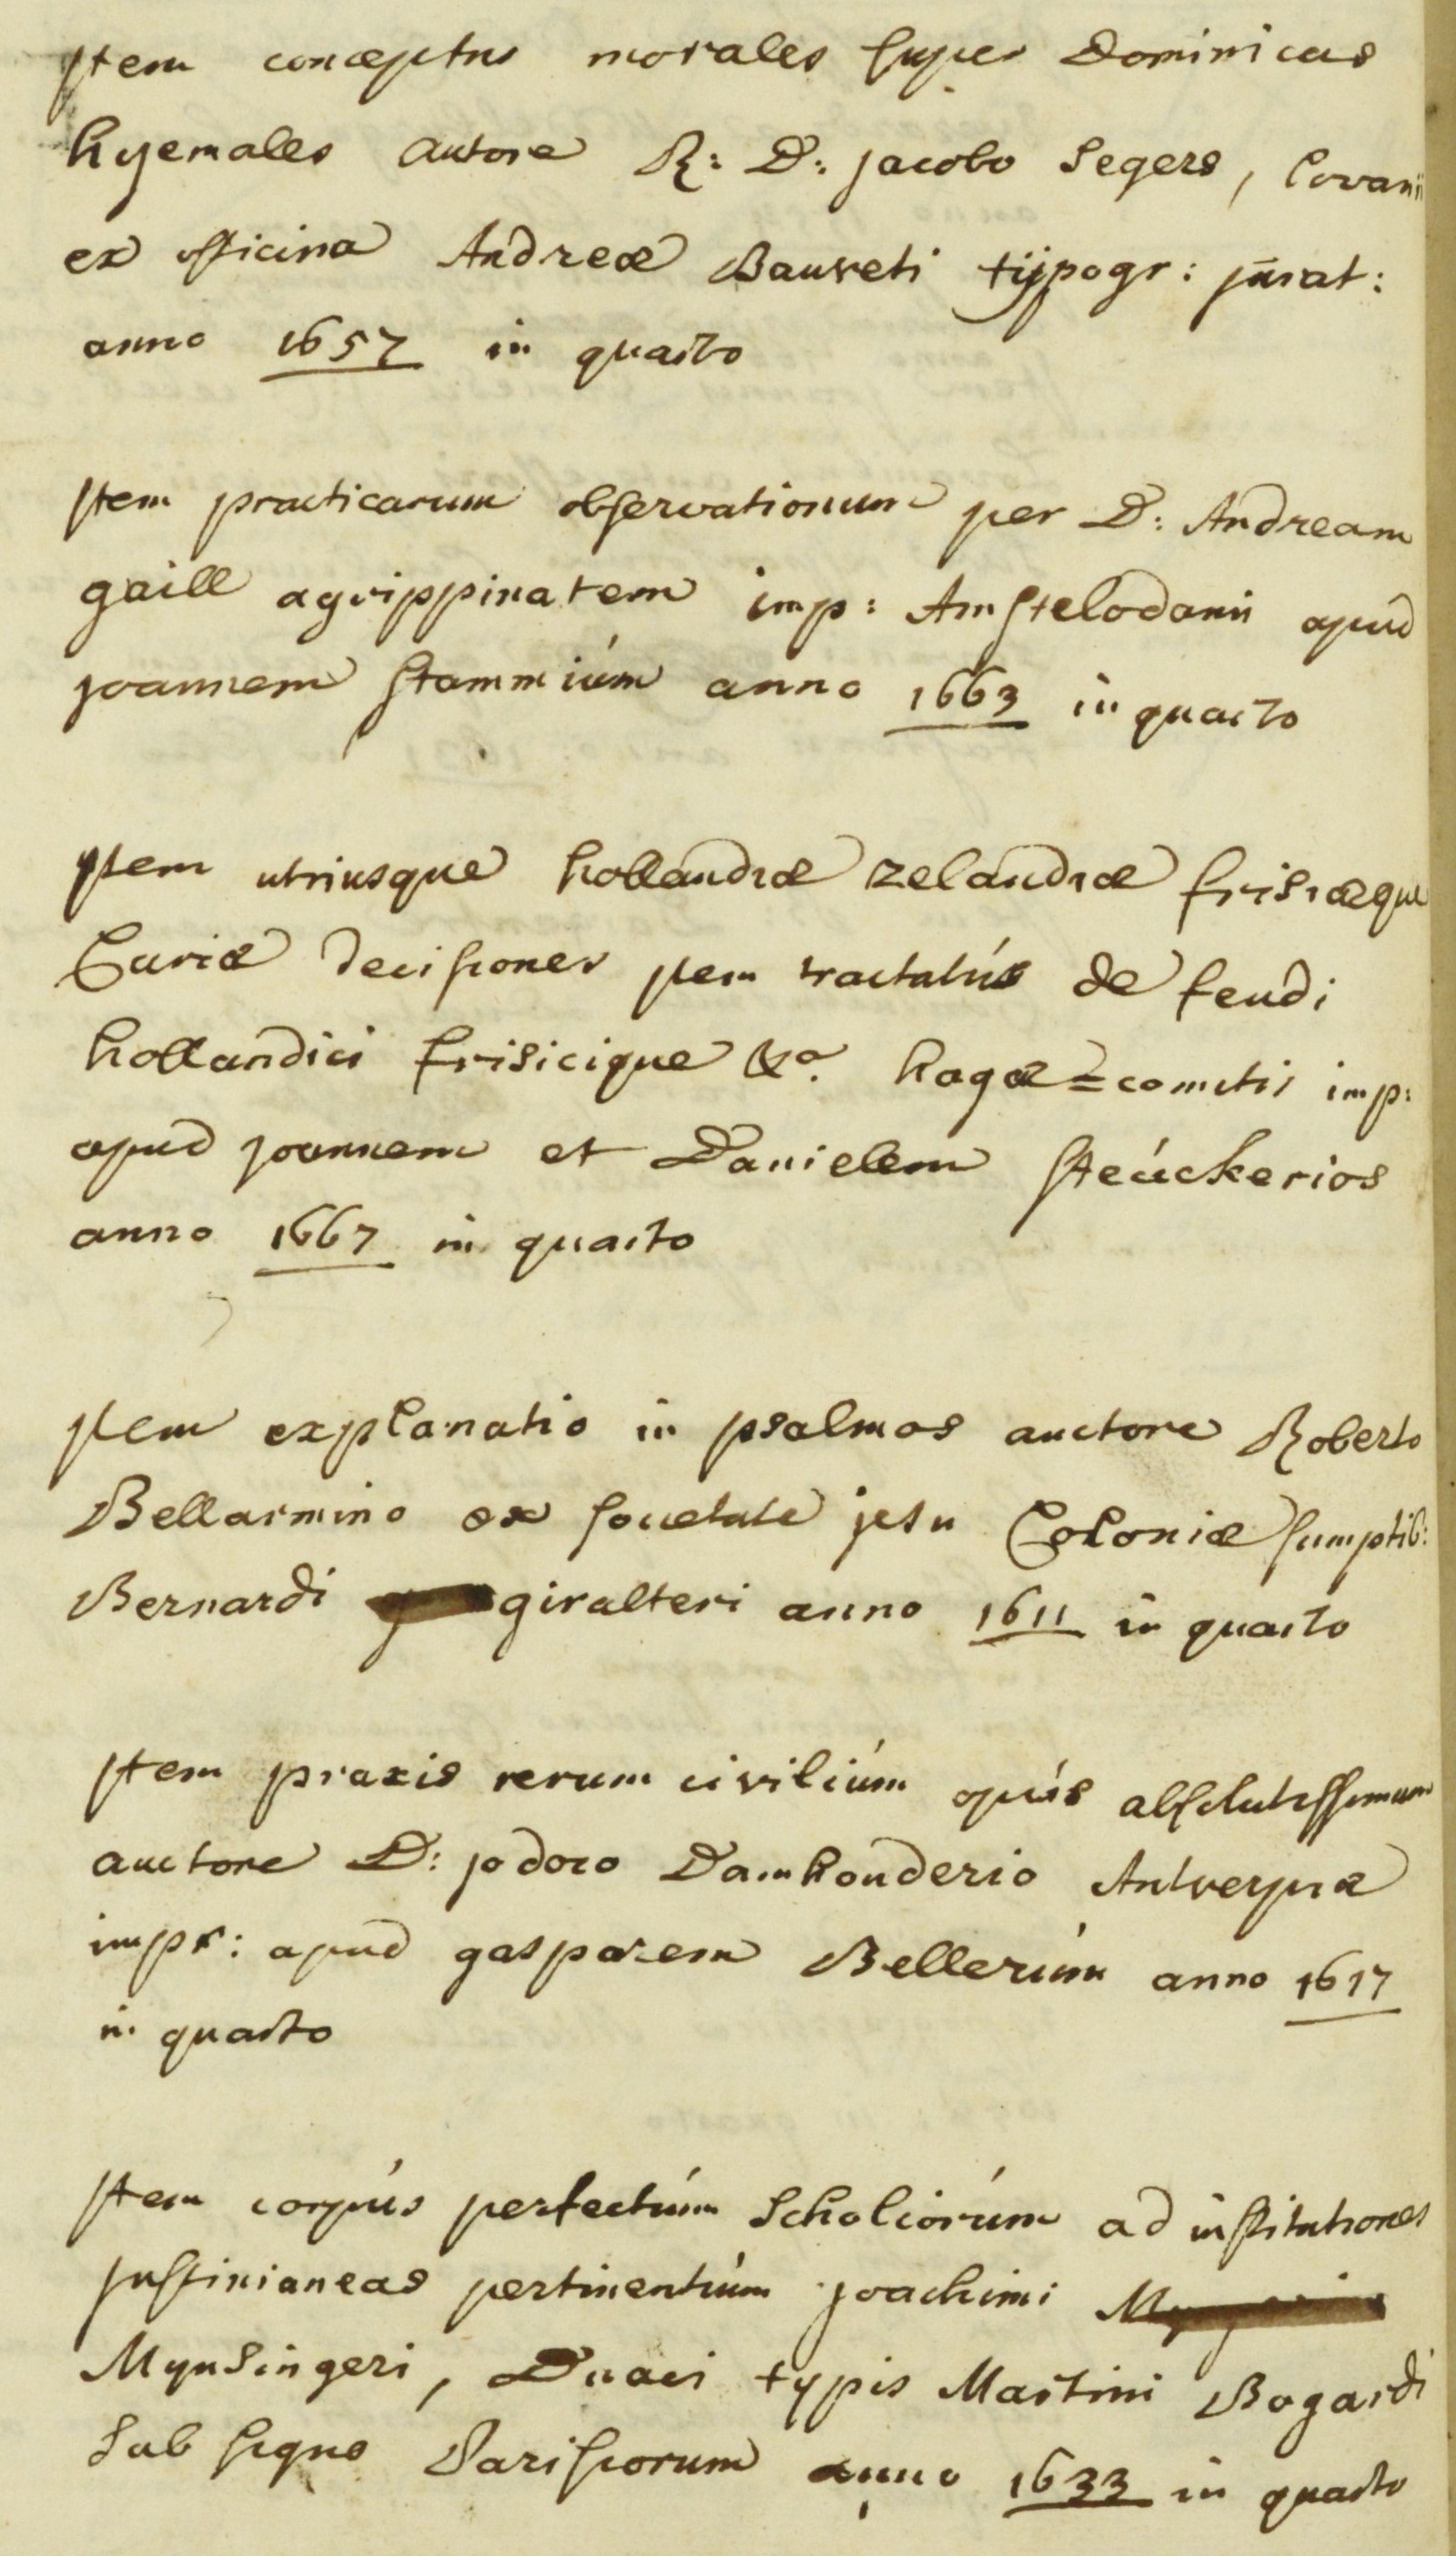 Item conceptus morales super Dominicas
hyemales autore R: D: jacobo Segers, Lovanii
ex officina Andreæ Bauveti typogr: jurat:
anno 1657 in quarto
Item practicarum observationum per D: Andream
gaill agrippinatem imp: Amstelodami apud
joannem stammium anno 1663 in quarto
Item utriusque hollandiæ zelandiæ frisiæque
Curiæ decisiones item tractatus de feudi
hollandici frisicique &a. hagæ=comitis imp:
apud joannem et Danielem steuckerios
anno 1667 in quarto
Item explanatio in psalmos auctore Roberto
Bellarmino ex societate jesu Coloniæ sumptib:
Bernardi giralteri anno 1611 in quarto
Item praxis rerum civilium opus absolutissimum
auctore D: jodoco Damhouderio Antverpiæ
impr: apud gasparem Bellerum anno 1617
in quarto
Item corpus perfectum Scholiorum ad institutiones
justinianeas pertinentium joachimi
Mynsingeri, Duaci typis Martini Bogardi
Sub signo Parisiorum anno 1633 in quarto